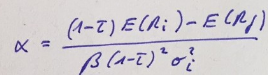 α = ((1-τ) E(R_i) - E(R_f)) / (β (1-τ)² σ_i²)